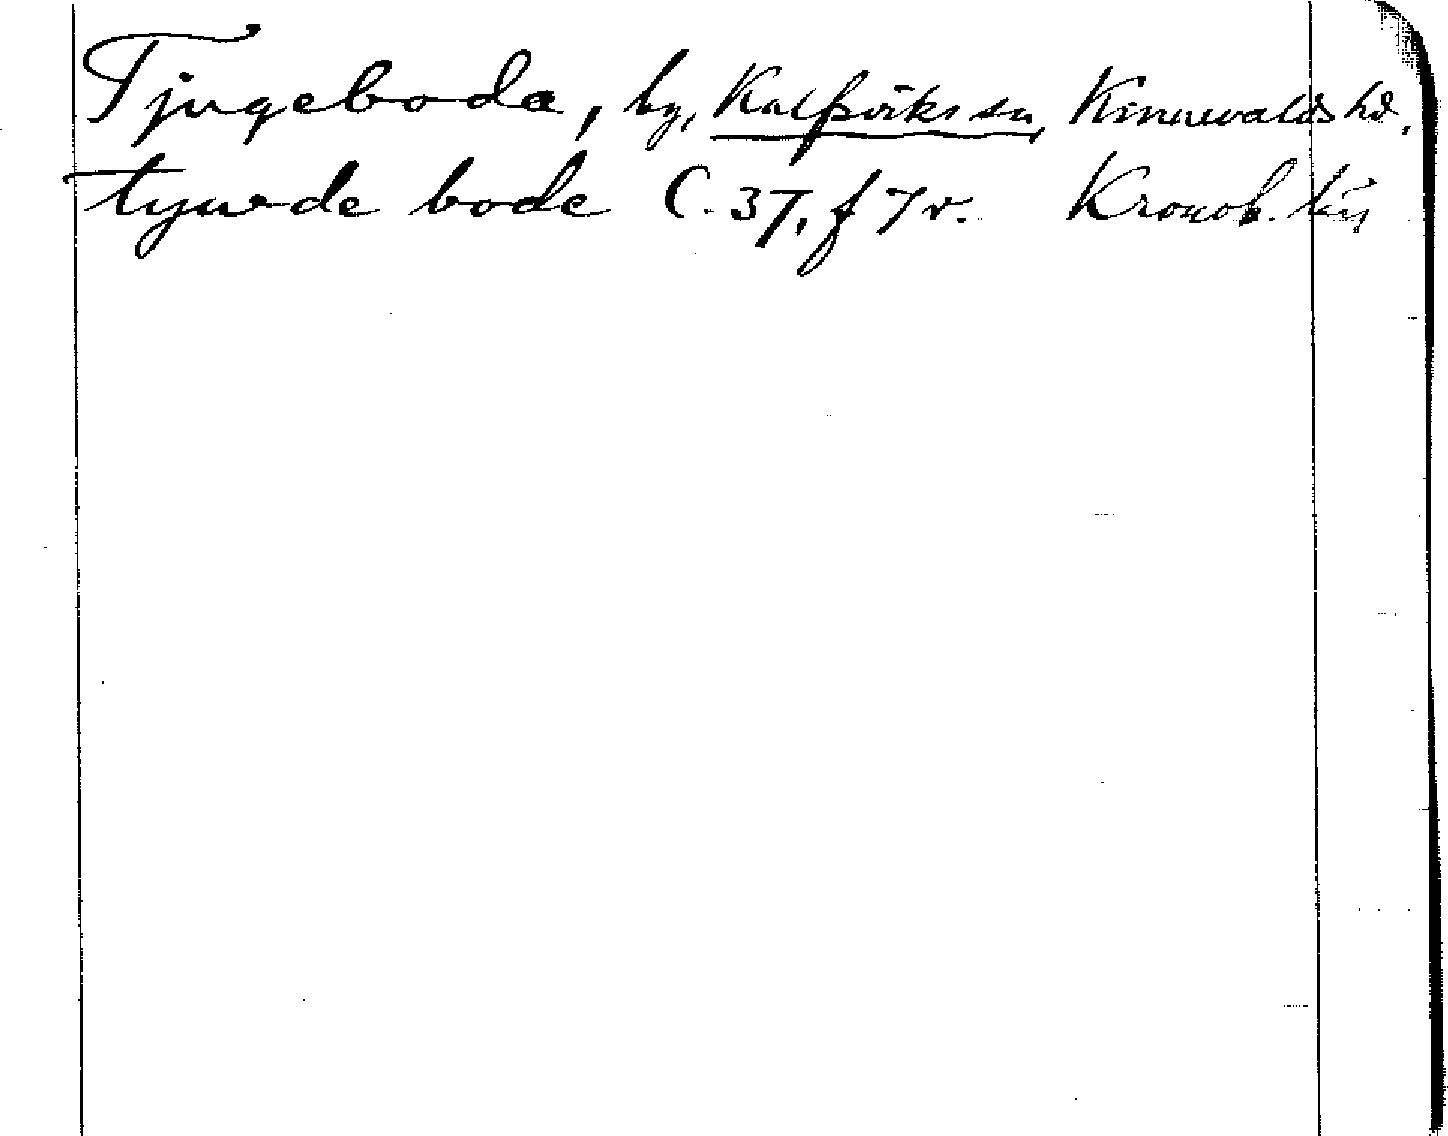 Tjugeboda, by, Kalfsviks sn, Kinnevalds hd.
tyuvde bode C. 37, f 7 v. Kronob. län